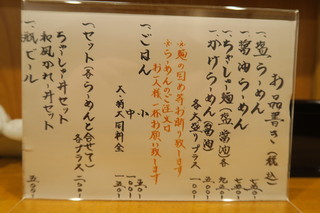 お品書き（税込）
一、塩らーめん
一、醤油らーめん
一、ちゃーしゅー麺（塩、醤油）各
一、かけらーめん（醤油）
各大盛りプラス
☆麺の固め等お断り致します
☆らーめんのご注文は
お一人様一杯お願い致します
一、ごはん
小
中
大・特大同料金
一、セット（各らーめんと合せて）
ちゃーしゅー丼セット
各プラス
和風かれー丼セット
一、瓶ビール